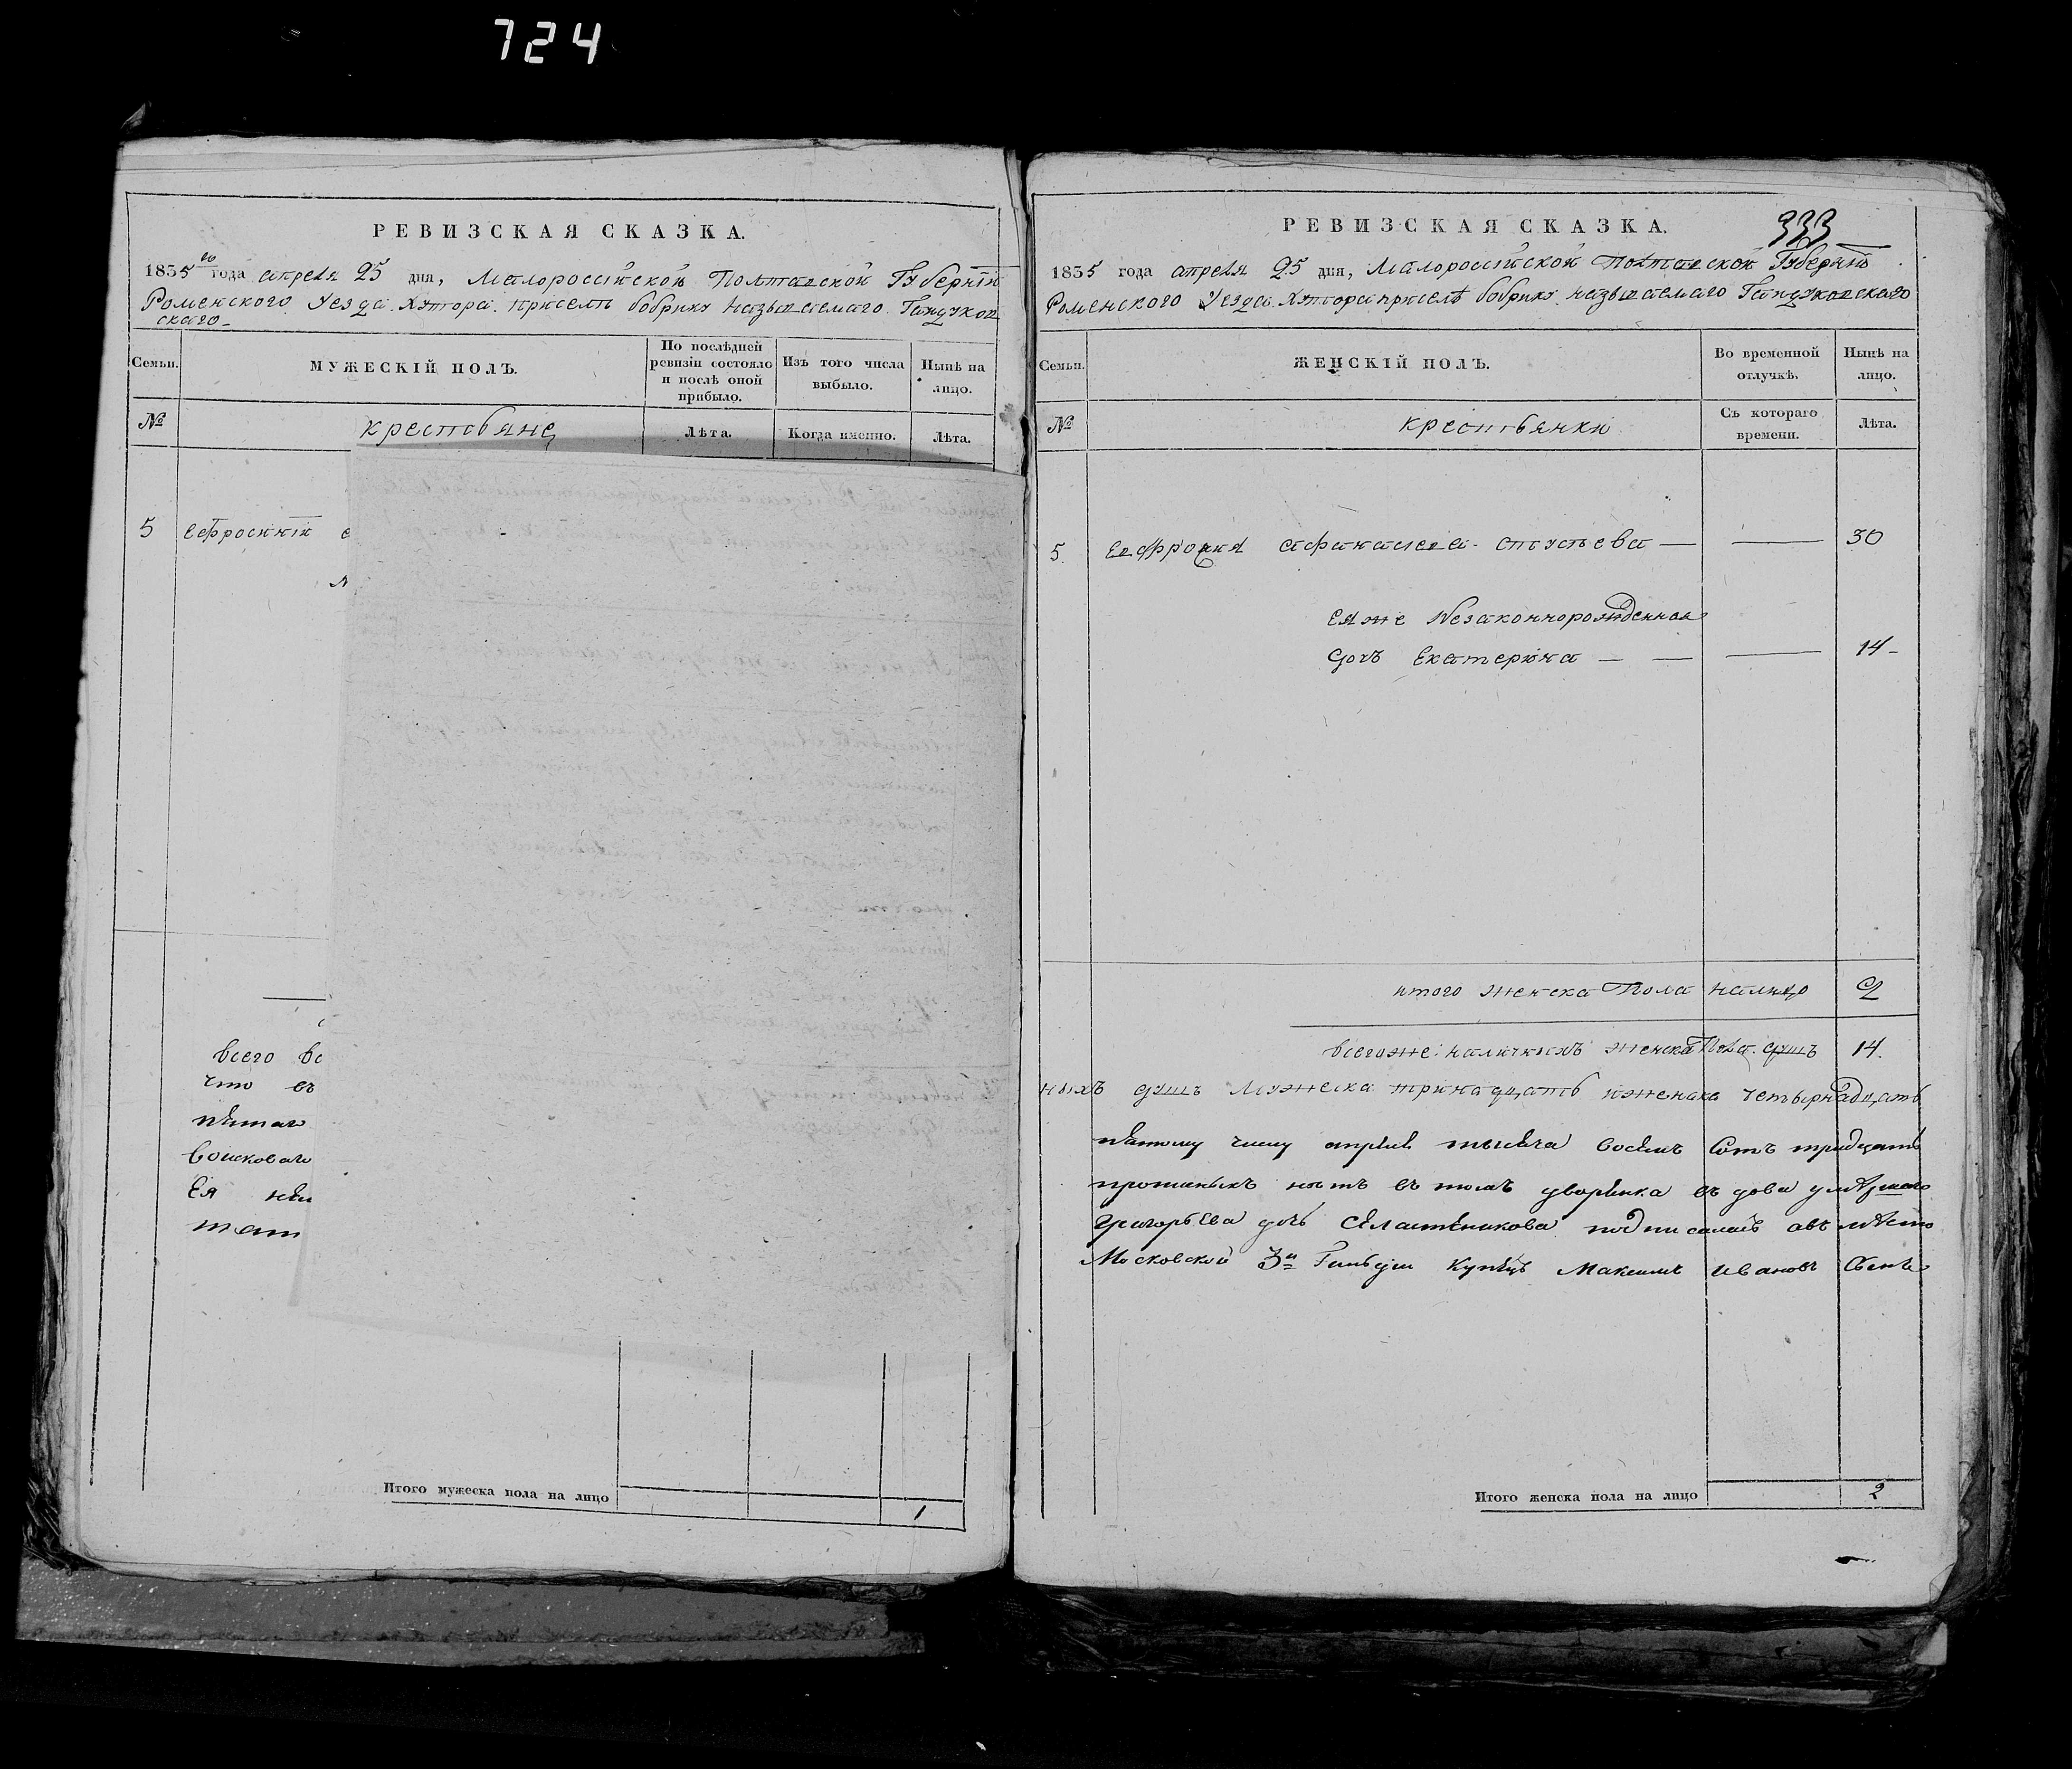 724
РЕВИЗСКАЯ СКАЗКА.
1835 го года апреля 25 дня, Малоросійской Полтавской Губерніи
Роменского Уезда. Хутора. присели бобрику называемаго. Гандуков
скаго
Семьи.
МУЖЕСКІЙ ПОЛЪ.
По послѣдней ревизіи состояло и послѣ оной прибыло.
Изъ того числа выбыло.
Нынѣ на лицо.
№
крестьяне
Лѣта.
Когда именно.
Лѣта.
5
всего вс
что въ
Ея
Итого мужеска пола на лицо
1
РЕВИЗСКАЯ СКАЗКА.
333
1835 года апреля 25 дня, Малоросійской Полтавской Губерніи
Роменского Уезда. Хутора приселѣ бобрику называемаго Гандуковскаго
Семьи.
ЖЕНСКІЙ ПОЛЪ.
Во временной отлучкѣ.
Нынѣ на лицо.
№
крестьянки
Съ котораго времени.
Лѣта.
5. афанасиева 30
Еяже Незаконнорожденная
дочъ Екатерина 14
итого женска Пола налицо 2
всегоже: наличныхъ женска Пола. душъ 14.
ныхъ душъ Мужеска тринадцать иженска четырнадцать
пятому числу апреля тысяча восемъ сотъ тридцать
нетъ въ томъ дворянка вдова умершаго
Григорьева дочь
Московской 3й Гильдіи Купецъ Максимъ Ивановъ
Итого женска пола на лицо
2